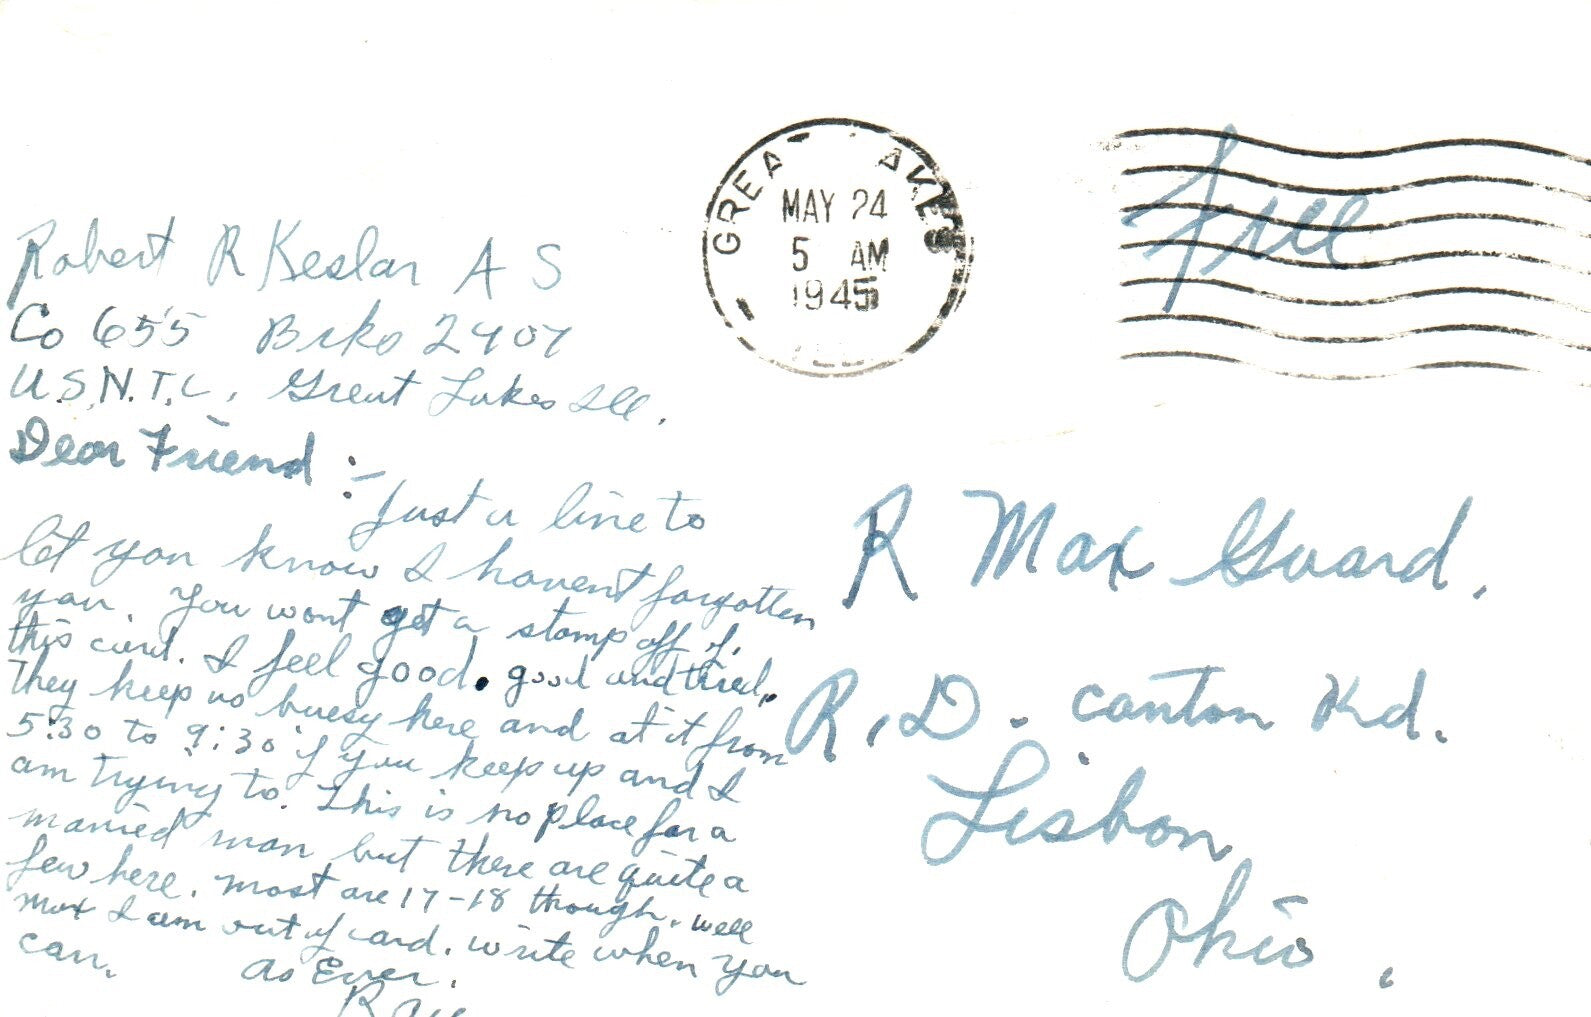 GREA AKES
MAY 24
5 AM
1945
free
Robert R Keslar A S
Co 655 Brks 2407
U.S.N.T.C, Great Lakes Ill.
Dear Friend :-
Just a line to
let you know I havent forgotten
you. You wont get a stamp off of
this card. I feel good. good and tired.
They keep us buesy here and at it from
5:30 to 9:30 if you keep up and I
am trying to. This is no place for a
married man but there are quite a
few here. most are 17-18 though. well
Max I am out of card. write when you
can. As Ever.
R Max Guard.
R.D. Canton Rd.
Lisbon,
Ohio.